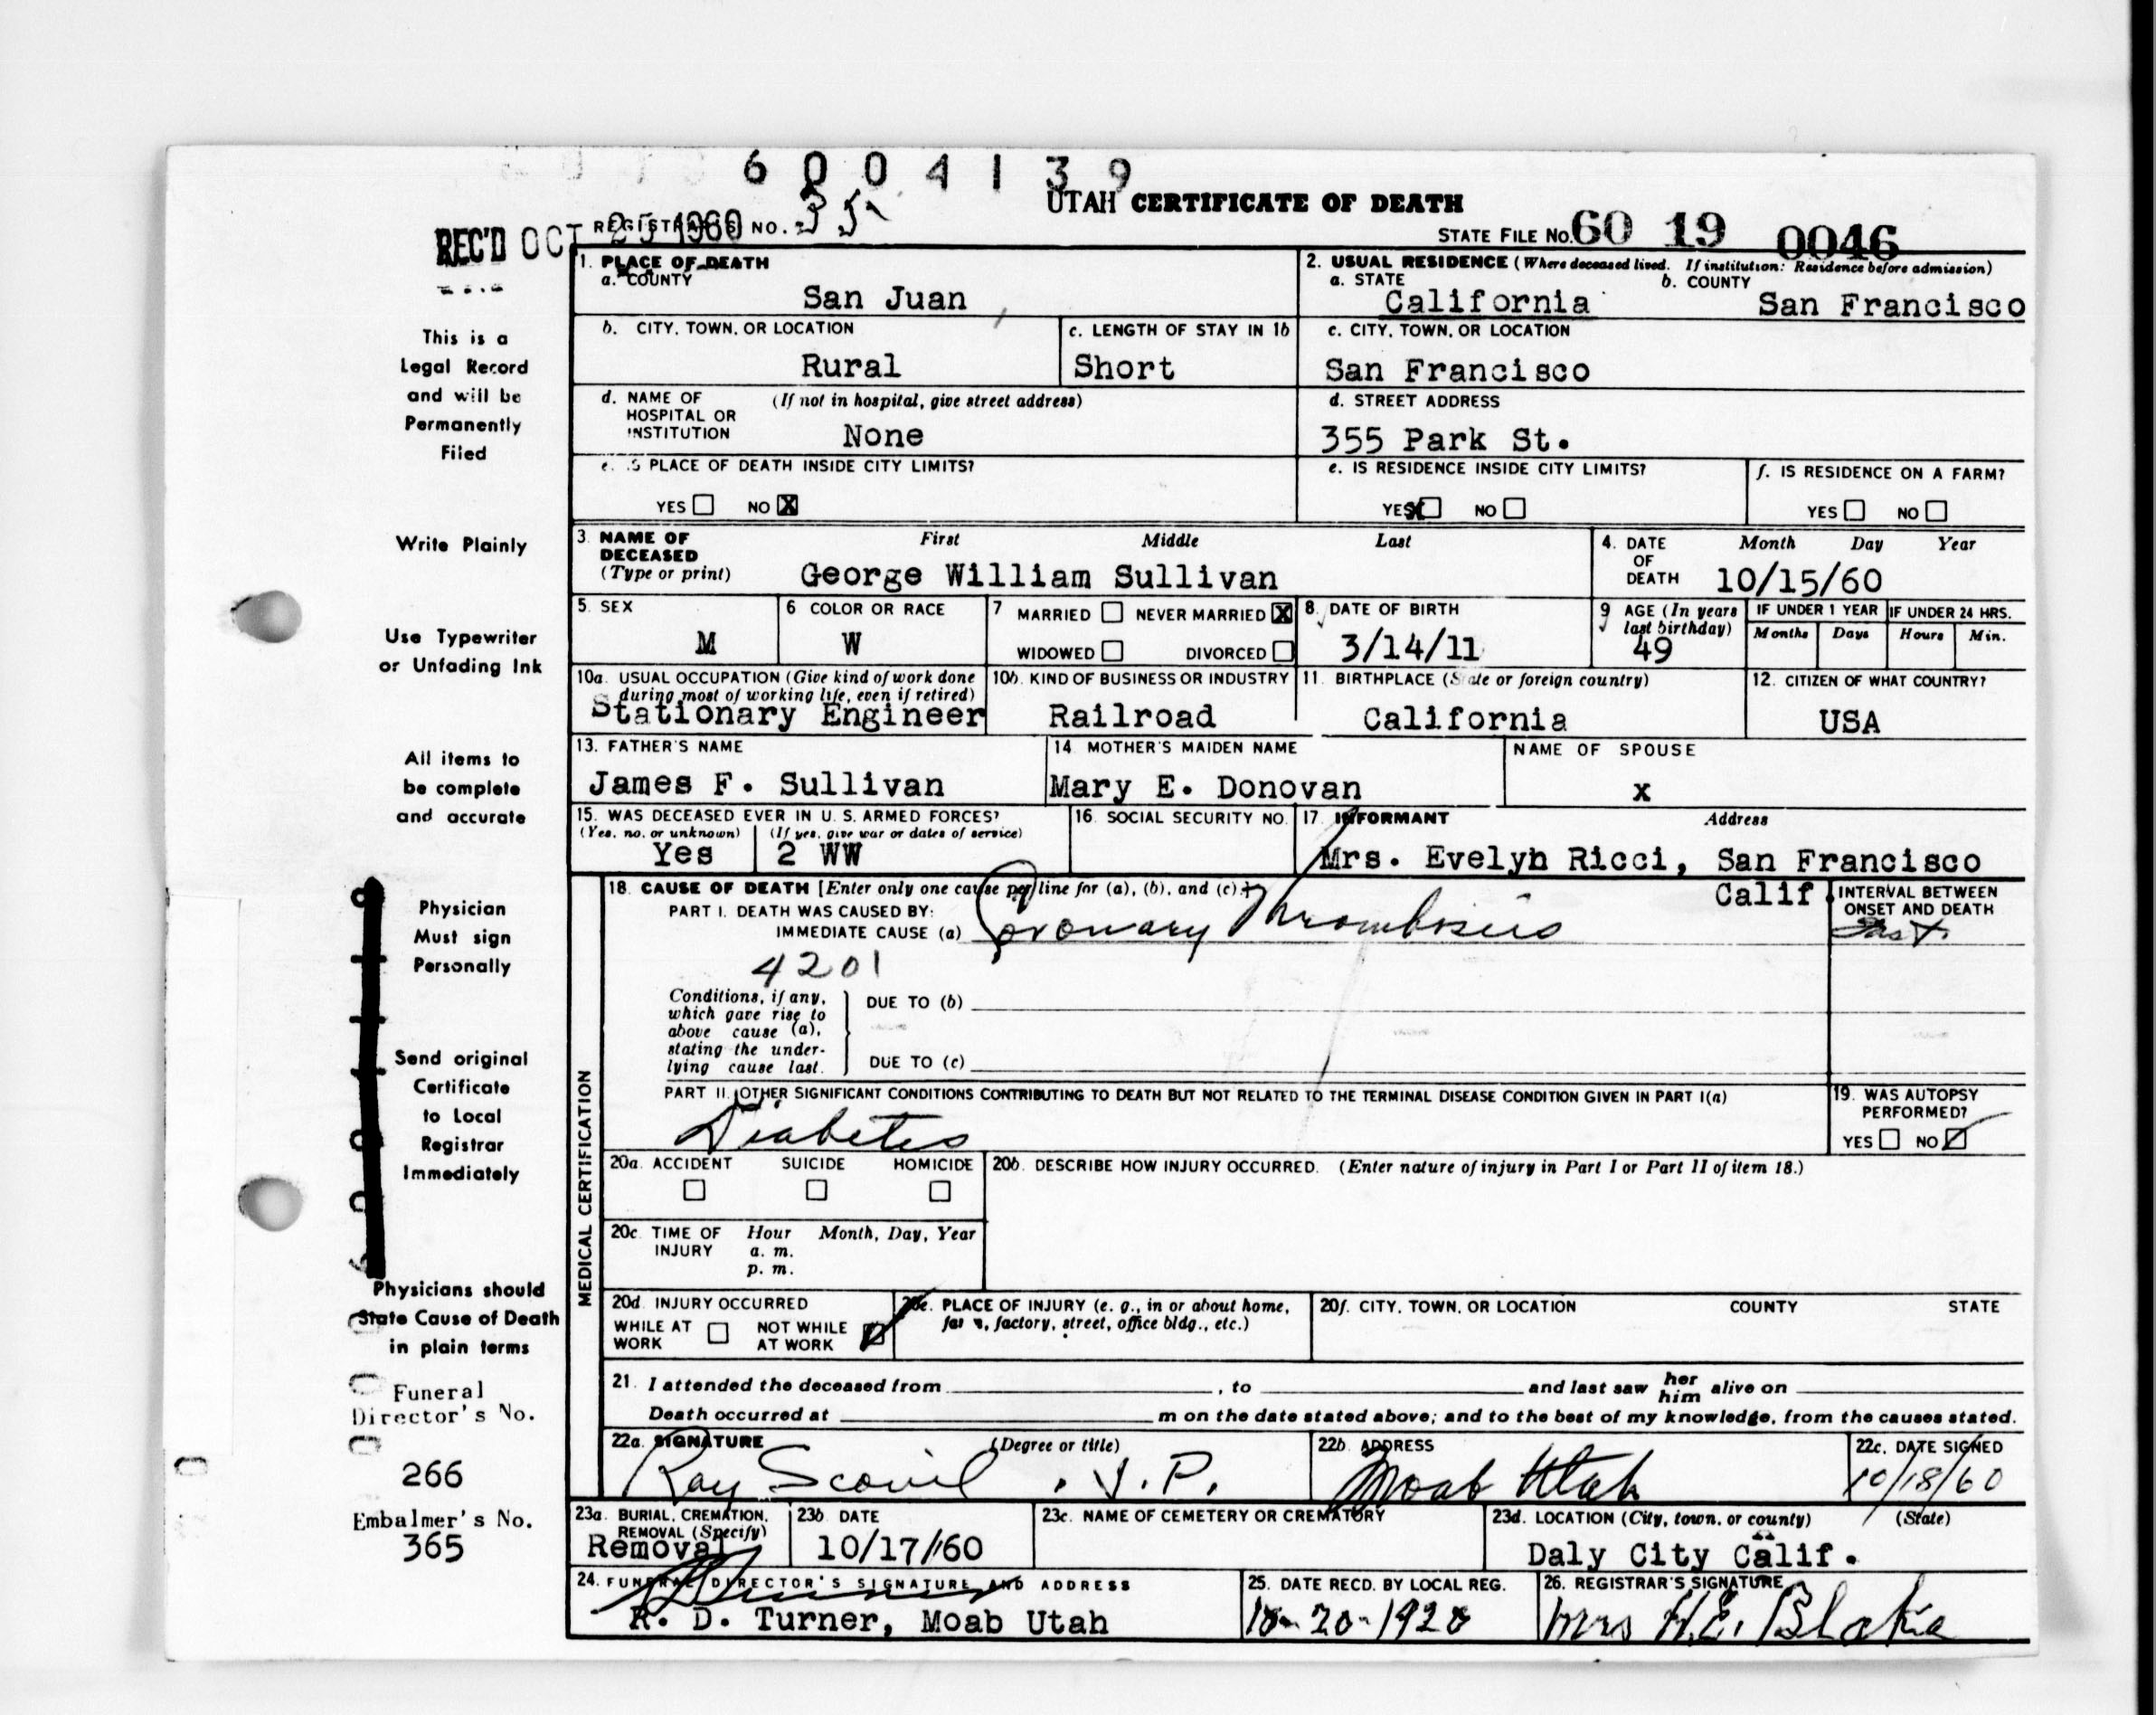 6004139
UTAH CERTIFICATE OF DEATH
REC'D OCT 25 1960 REGISTRAR'S NO. 35
STATE FILE NO. 60 19 0046
1. PLACE OF DEATH
a. COUNTY
San Juan
2. USUAL RESIDENCE (Where deceased lived. If institution: Residence before admission)
a. STATE b. COUNTY
California San Francisco
b. CITY, TOWN, OR LOCATION
Rural
c. LENGTH OF STAY IN 1b
Short
c. CITY, TOWN, OR LOCATION
San Francisco
d. NAME OF (If not in hospital, give street address)
HOSPITAL OR
INSTITUTION None
d. STREET ADDRESS
355 Park St.
e. IS PLACE OF DEATH INSIDE CITY LIMITS?
YES NO X
e. IS RESIDENCE INSIDE CITY LIMITS?
YES X NO
f. IS RESIDENCE ON A FARM?
YES NO
3. NAME OF First Middle Last
DECEASED
(Type or print) George William Sullivan
4. DATE Month Day Year
OF
DEATH 10/15/60
5. SEX
M
6 COLOR OR RACE
W
7 MARRIED NEVER MARRIED X
WIDOWED DIVORCED
8. DATE OF BIRTH
3/14/11
9 AGE (In years
last birthday)
49
IF UNDER 1 YEAR
Months Days
IF UNDER 24 HRS.
Hours Min.
10a. USUAL OCCUPATION (Give kind of work done
during most of working life, even if retired)
Stationary Engineer
10b. KIND OF BUSINESS OR INDUSTRY
Railroad
11. BIRTHPLACE (State or foreign country)
California
12. CITIZEN OF WHAT COUNTRY?
USA
13. FATHER'S NAME
James F. Sullivan
14. MOTHER'S MAIDEN NAME
Mary E. Donovan
NAME OF SPOUSE
x
15. WAS DECEASED EVER IN U. S. ARMED FORCES?
(Yes, no, or unknown) (If yes, give war or dates of service)
Yes 2 WW
16. SOCIAL SECURITY NO.
17. INFORMANT Address
Mrs. Evelyn Ricci, San Francisco
Calif.
MEDICAL CERTIFICATION
18. CAUSE OF DEATH [Enter only one cause per line for (a), (b), and (c).]
PART I. DEATH WAS CAUSED BY:
IMMEDIATE CAUSE (a) Coronary Thrombosis
4201
INTERVAL BETWEEN
ONSET AND DEATH
Conditions, if any,
which gave rise to
above cause (a),
stating the under-
lying cause last.
DUE TO (b)
DUE TO (c)
PART II. OTHER SIGNIFICANT CONDITIONS CONTRIBUTING TO DEATH BUT NOT RELATED TO THE TERMINAL DISEASE CONDITION GIVEN IN PART I(a)
Diabetes
19. WAS AUTOPSY
PERFORMED?
YES NO
20a. ACCIDENT SUICIDE HOMICIDE
20b. DESCRIBE HOW INJURY OCCURRED. (Enter nature of injury in Part I or Part II of item 18.)
20c. TIME OF Hour Month, Day, Year
INJURY a. m.
p. m.
20d. INJURY OCCURRED
WHILE AT NOT WHILE
WORK AT WORK
20e. PLACE OF INJURY (e. g., in or about home,
farm, factory, street, office bldg., etc.)
20f. CITY, TOWN, OR LOCATION COUNTY STATE
21. I attended the deceased from , to and last saw her him alive on
Death occurred at m on the date stated above; and to the best of my knowledge, from the causes stated.
22a. SIGNATURE (Degree or title)
Ray Scovil . J. P.
22b. ADDRESS
Moab Utah
22c. DATE SIGNED
10/18/60
23a. BURIAL, CREMATION,
REMOVAL (Specify)
Removal
23b. DATE
10/17/60
23c. NAME OF CEMETERY OR CREMATORY
23d. LOCATION (City, town, or county) (State)
Daly City Calif.
24. FUNERAL DIRECTOR'S SIGNATURE AND ADDRESS
R. D. Turner, Moab Utah
25. DATE RECD. BY LOCAL REG.
26. REGISTRAR'S SIGNATURE
Mrs H.E. Blake
This is a
Legal Record
and will be
Permanently
Filed
Write Plainly
Use Typewriter
or Unfading Ink
All items to
be complete
and accurate
Physician
Must sign
Personally
Send original
Certificate
to Local
Registrar
Immediately
Physicians should
State Cause of Death
in plain terms
Funeral
Director's No.
266
Embalmer's No.
365